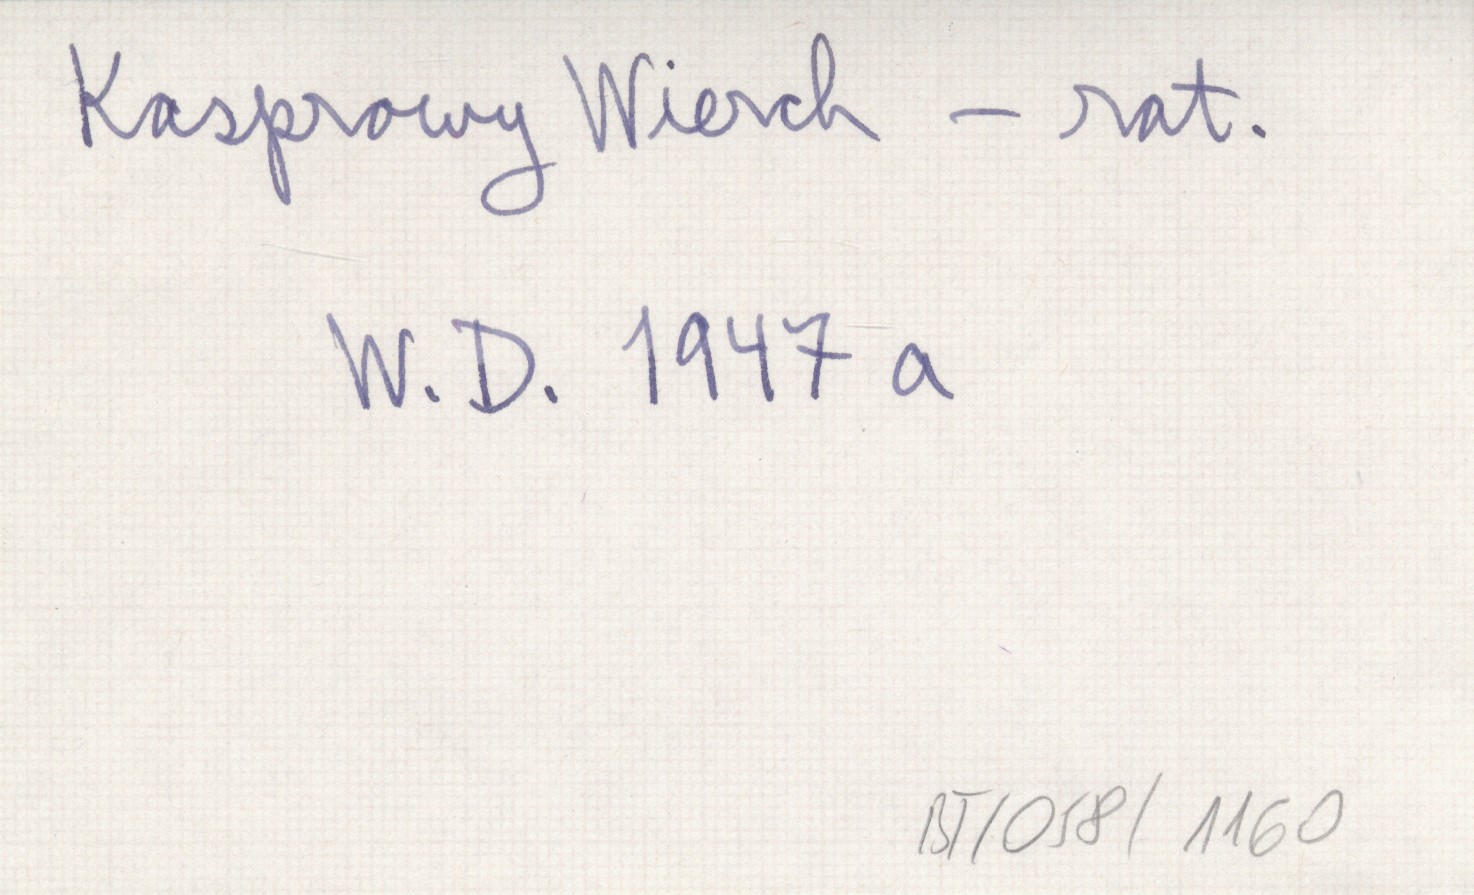 Kasprowy Wierch – rat.
W.D. 1947 a
BT/058/ 1160